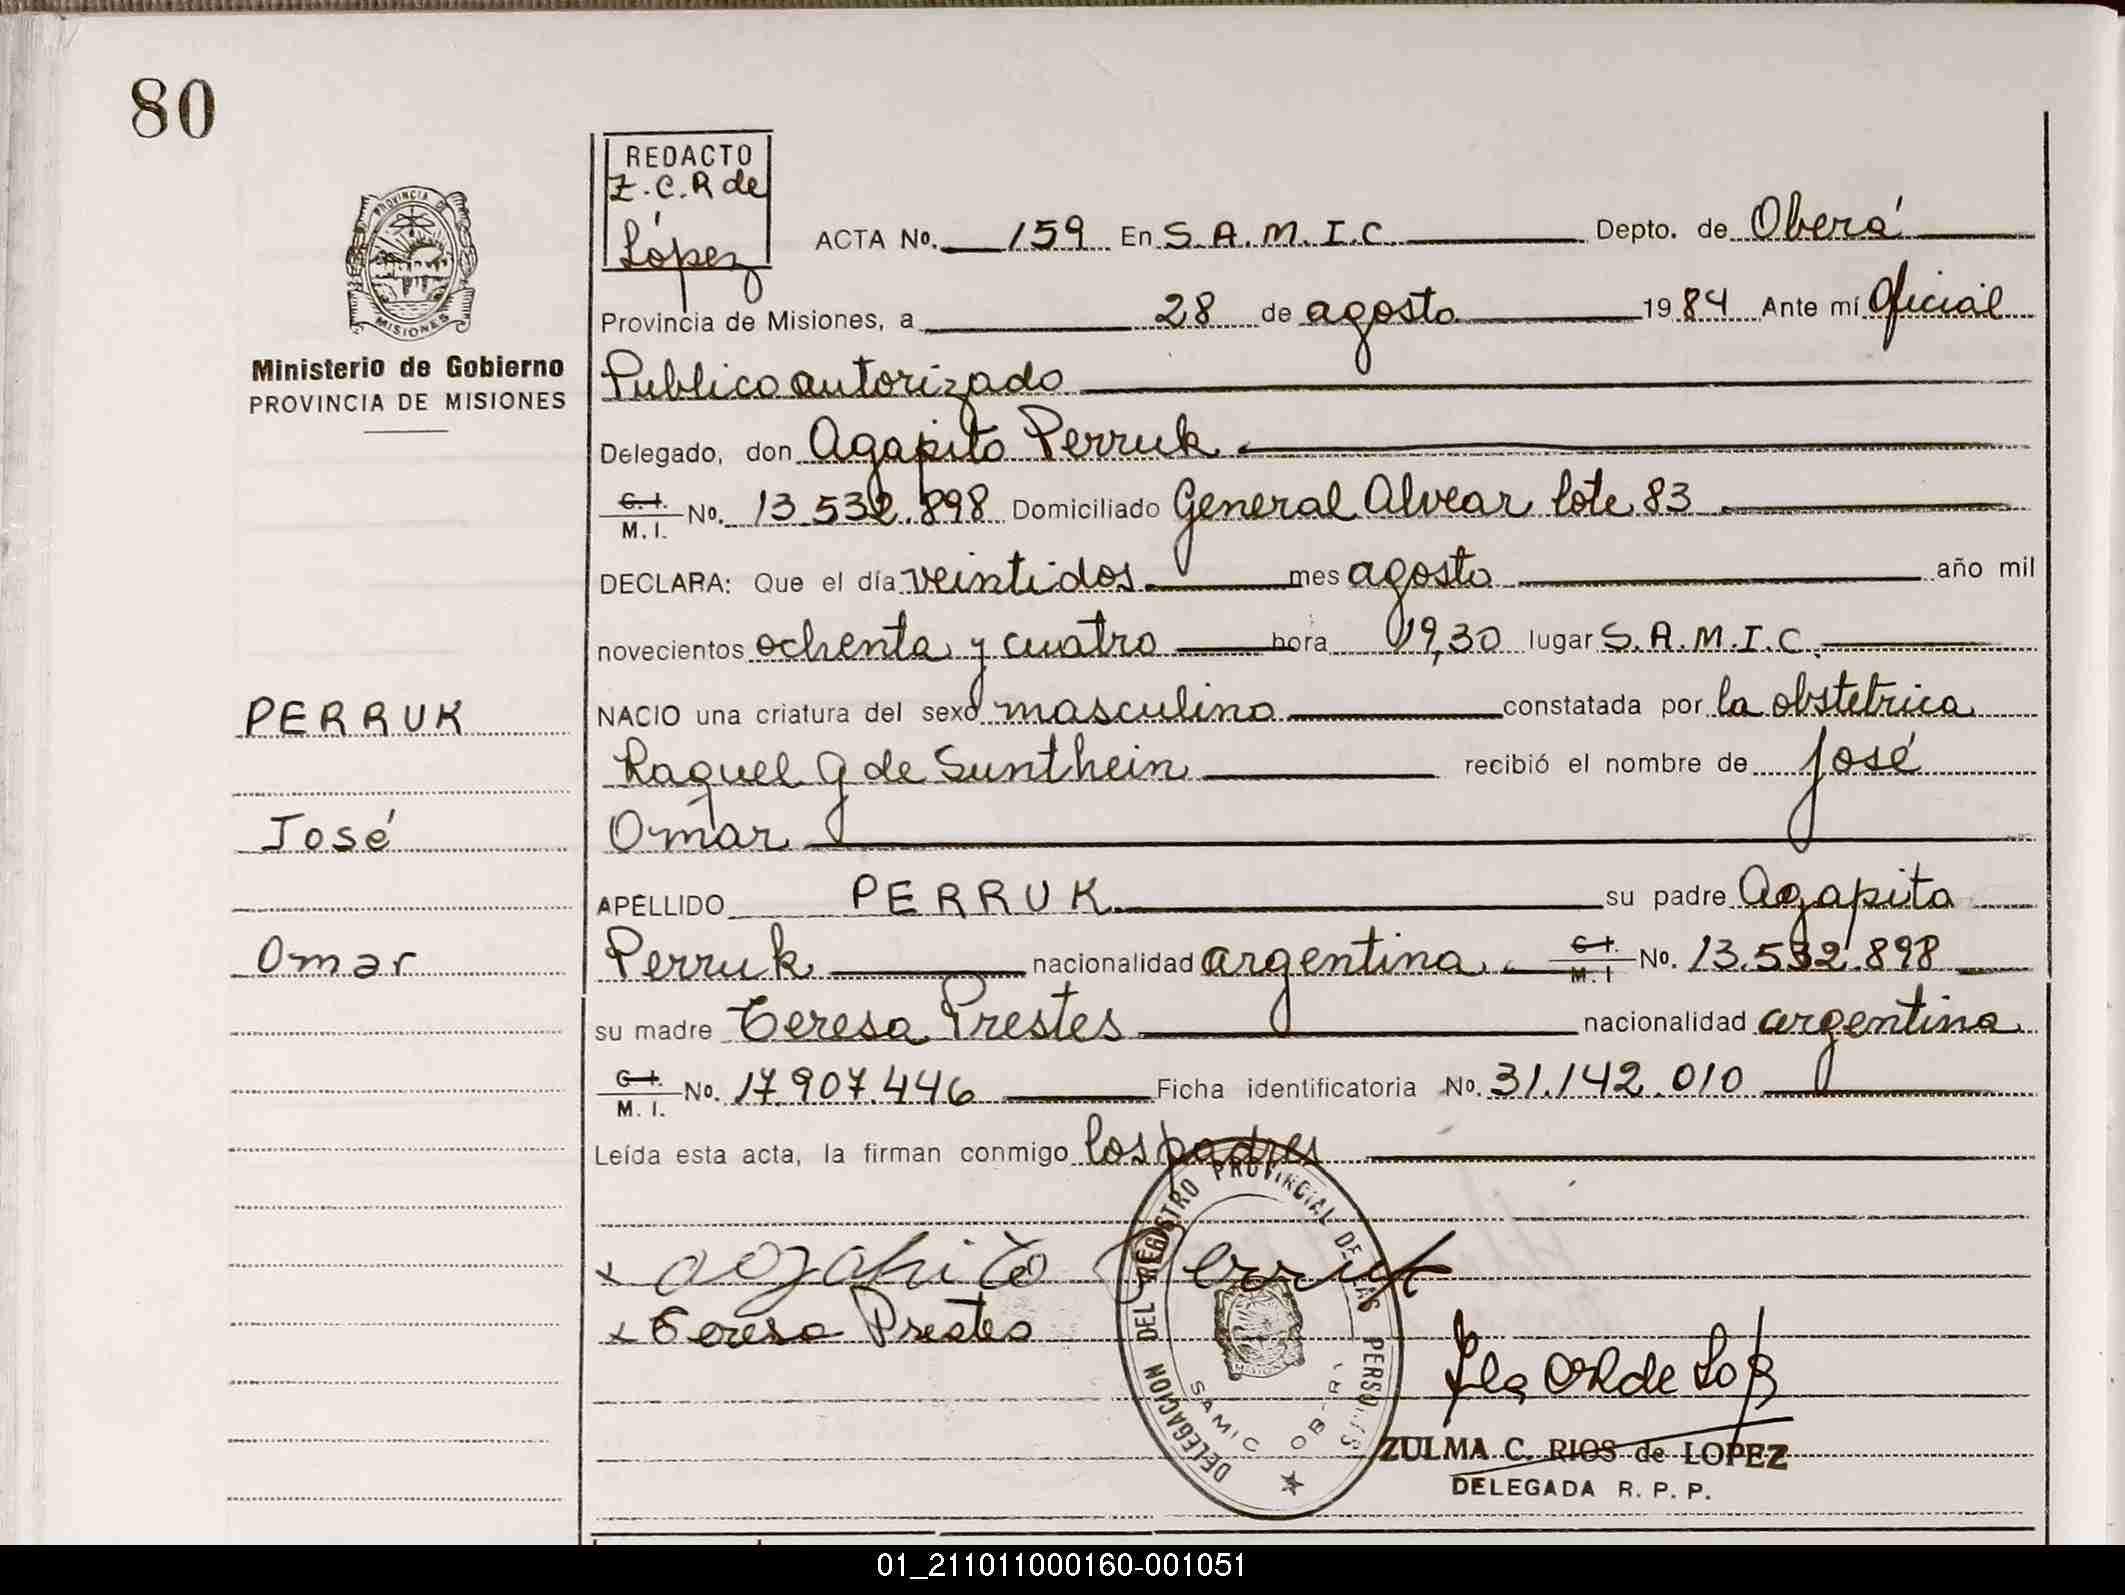 80
REDACTO
Z.C.R de
López
PROVINCIA DE
MISIONES
Ministerio de Gobierno
PROVINCIA DE MISIONES
ACTA No. 159 En S.A.M.I.C. Depto. de Oberá
Provincia de Misiones, a 28 de agosto 1984 Ante mí Oficial
Publico autorizado
Delegado, don Agapito Perruk
C.I. M.I. No. 13.532.898 Domiciliado General Alvear lote 83
DECLARA: Que el día veintidos mes agosto año mil
novecientos ochenta y cuatro hora 19,30 lugar S.A.M.I.C.
NACIO una criatura del sexo masculino constatada por la obstetrica
Raquel G de Sunthein recibió el nombre de José
Omar
APELLIDO PERRUK su padre Agapito
Perruk nacionalidad argentina C.I. M.I No. 13.532.898
su madre Teresa Prestes nacionalidad argentina
C.I. M.I. No. 17.907.446 Ficha identificatoria No. 31.142.010
Leída esta acta, la firman conmigo los padres
PERRUK
José
Omar
x Agapito Perruk
x Teresa Prestes
DELEGACION DEL REGISTRO PROVINCIAL DE LAS PERSONAS
SAMIC
ZULMA C. RIOS de LOPEZ
DELEGADA R. P. P.
01_211011000160-001051